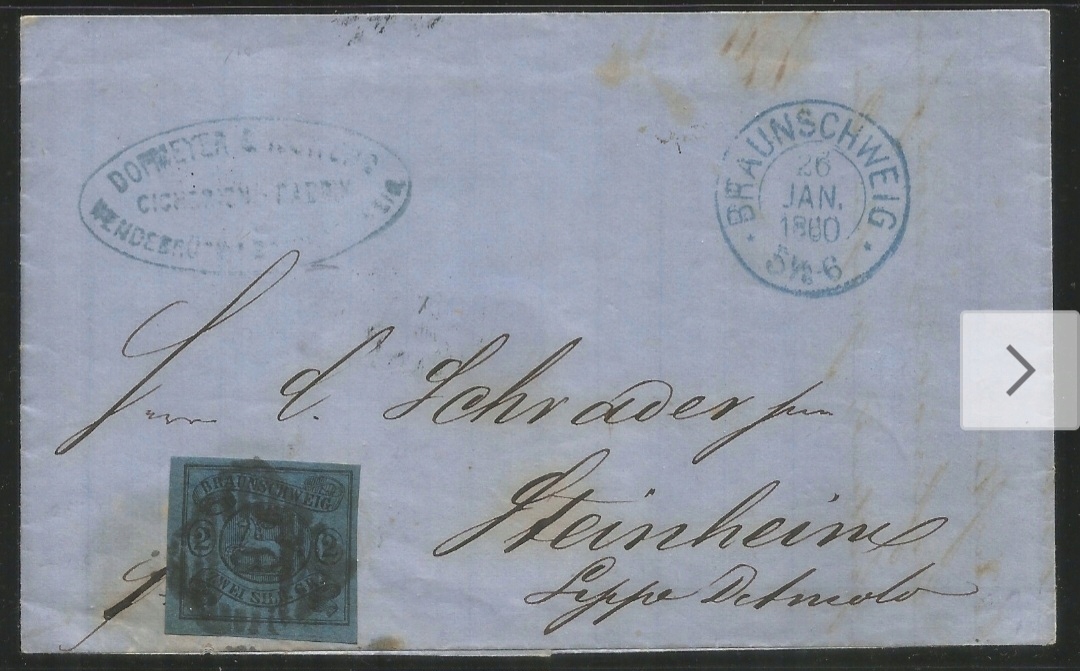 DOPMEYER &
CICHORIEN FABRIK
BRAUNSCHWEIG
26
JAN.
1860
5½-6
Herrn C. Schrader jun
Steinheim
Lippe Detmold
BRAUNSCHWEIG
2 2
ZWEI SILB. GR.